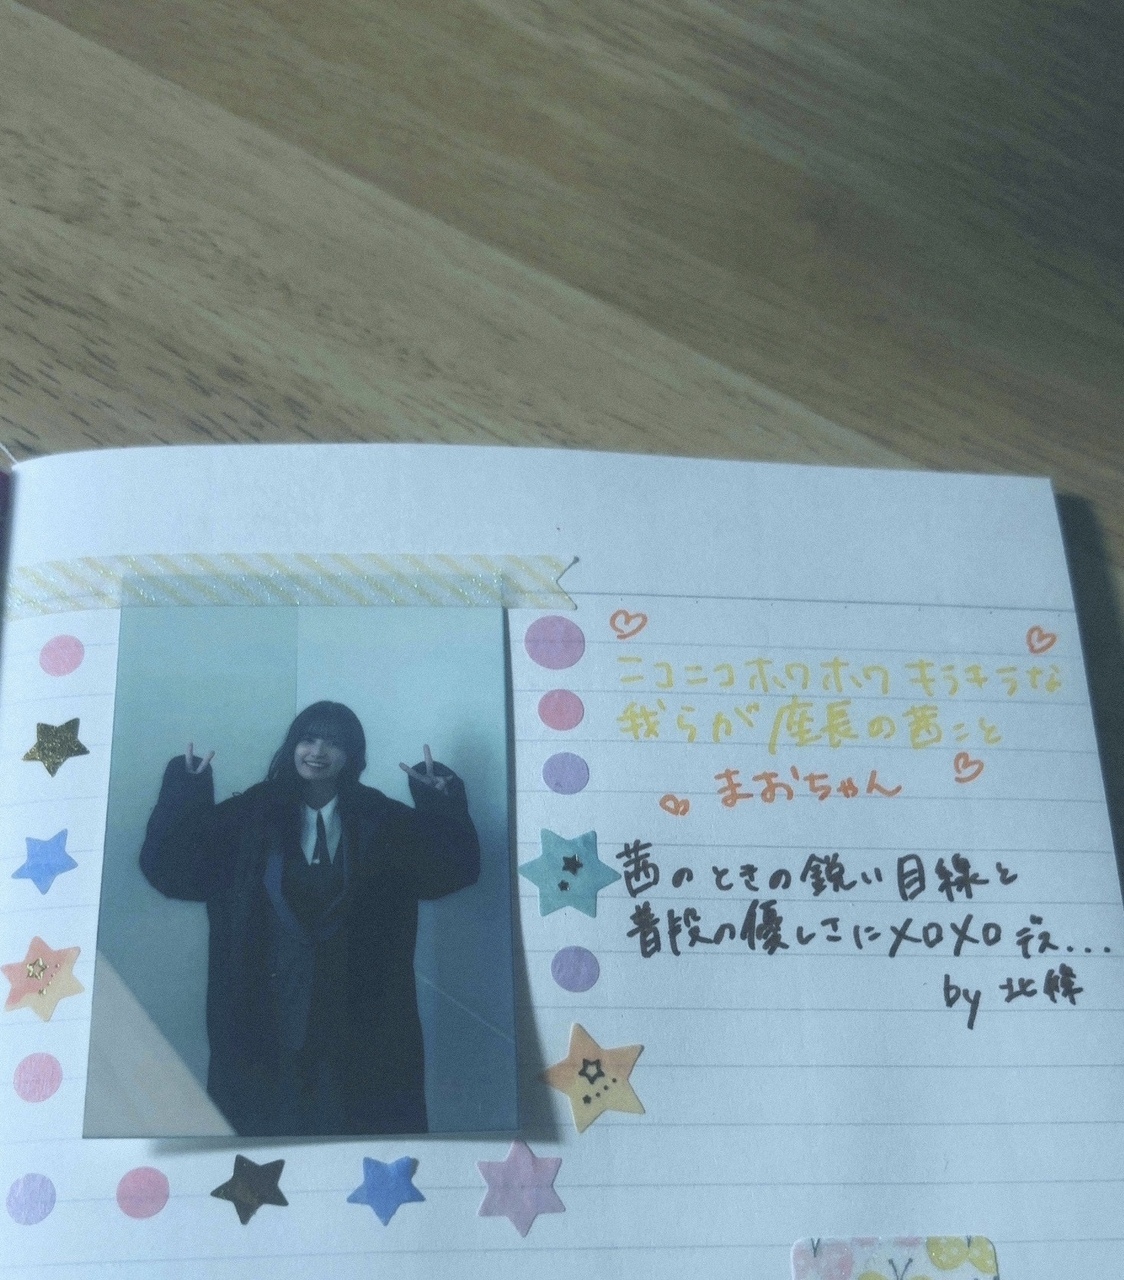 ニコニコホワホワキラキラな
我らが座長の茜こと
まおちゃん
茜のときの鋭い目線と
普段の優しさにメロメロデス...
by 北條